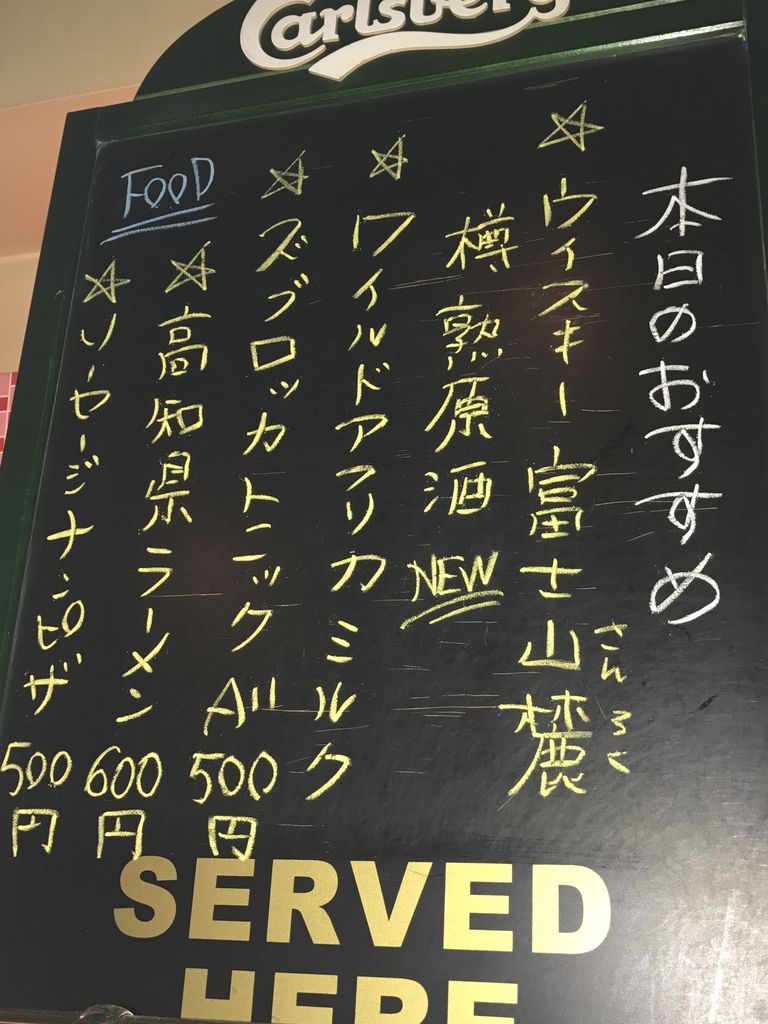 Carlsberg
本日のおすすめ
☆ウィスキー 富士山麓
さんろく
樽熟原酒 NEW
☆ワイルドアフリカミルク
☆ズブロッカトニック All 500円
FOOD
☆高知県ラーメン 600円
☆ソーセージナンピザ 500円
SERVED
HERE